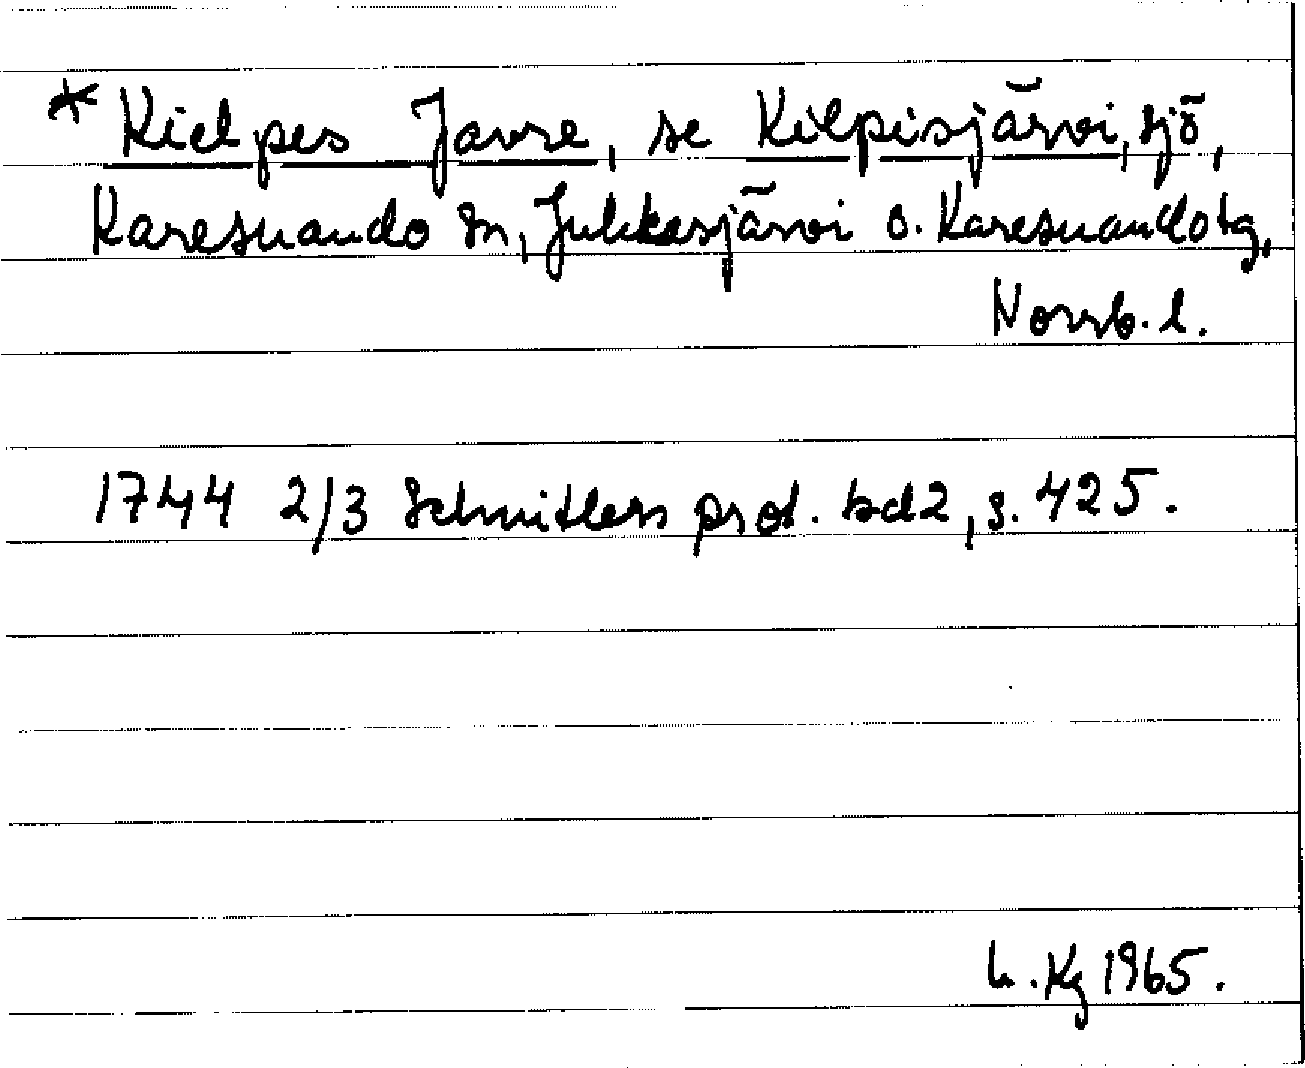 * Kielpes Javre, se Kilpisjärvi, sjö,
Karesuando sn, Jukkasjärvi o. Karesuando tg,
Norrb. l.
1744 2/3 Schnitlers prot. bd2, s. 425.
h. Kg 1965.